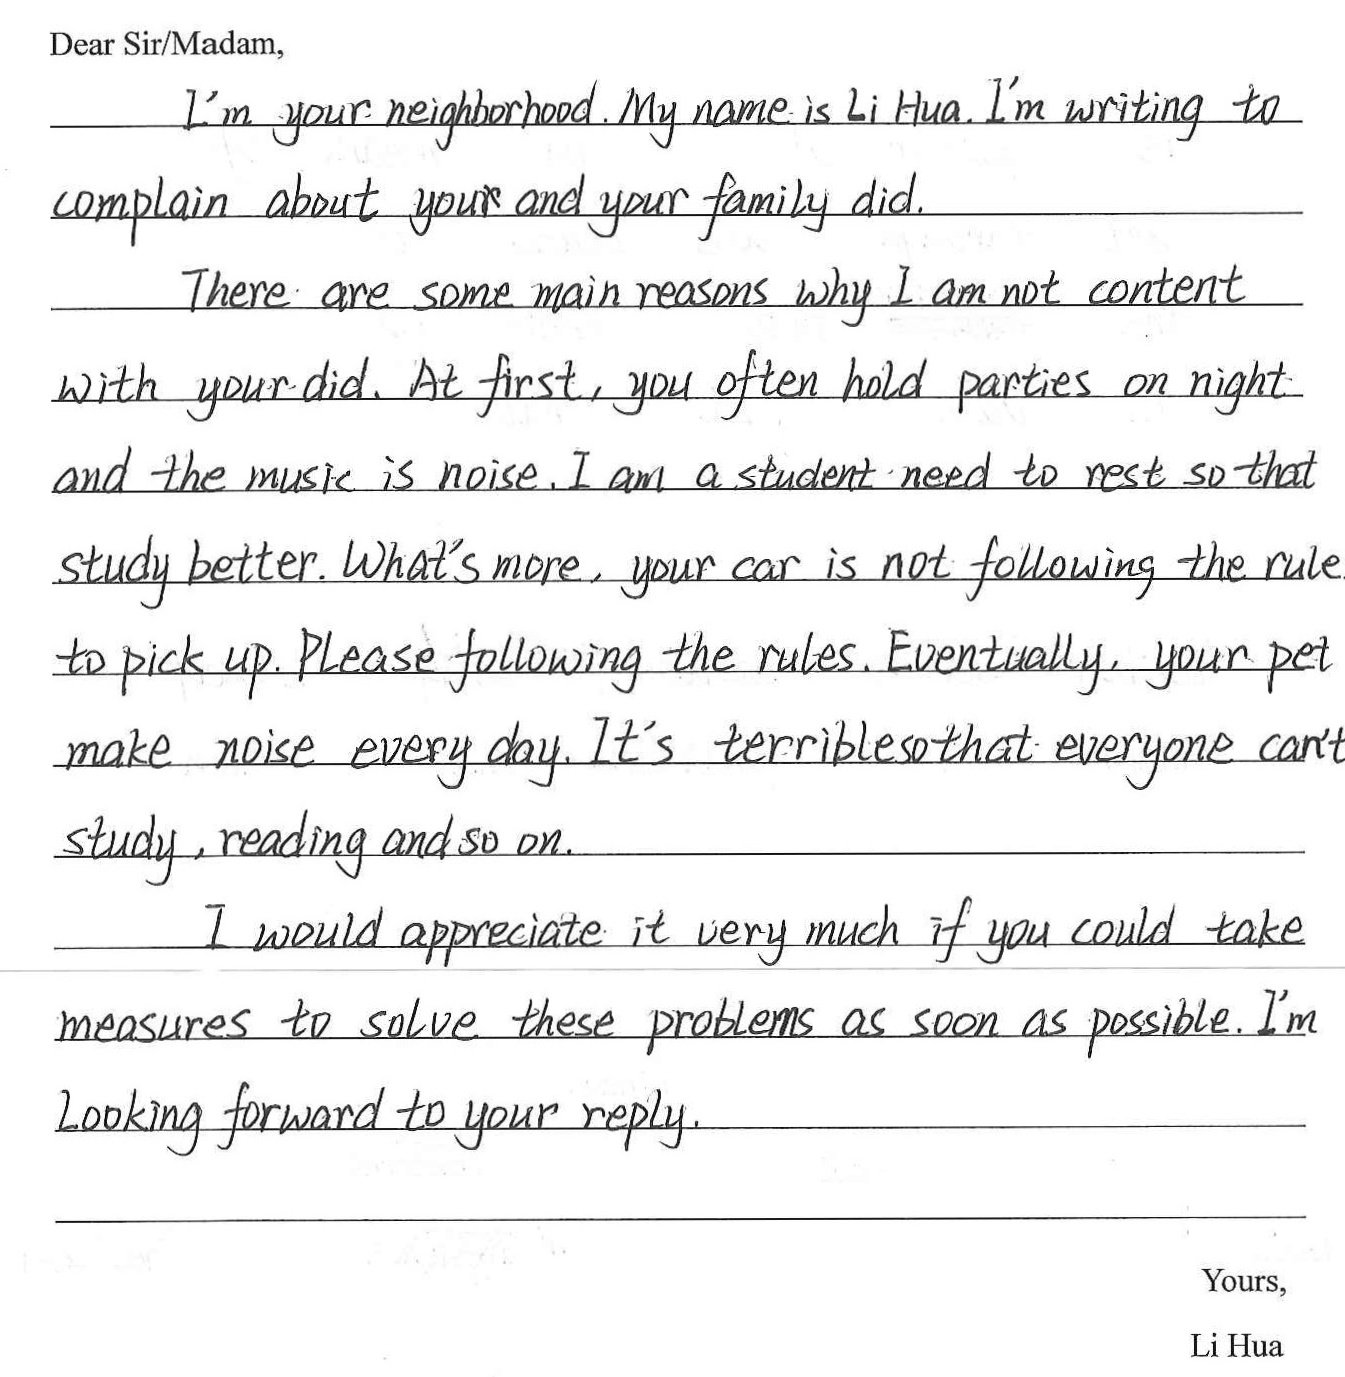 Dear Sir/Madam,
I'm your neighborhood. My name is Li Hua. I'm writing to
complain about your and your family did.
There are some main reasons why I am not content
with your did. At first, you often hold parties on night
and the music is noise. I am a student need to rest so that
study better. What's more, your car is not following the rule
to pick up. Please following the rules. Eventually, your pet
make noise every day. It's terrible so that everyone can't
study, reading and so on.
I would appreciate it very much if you could take
measures to solve these problems as soon as possible. I'm
Looking forward to your reply.
Yours,
Li Hua